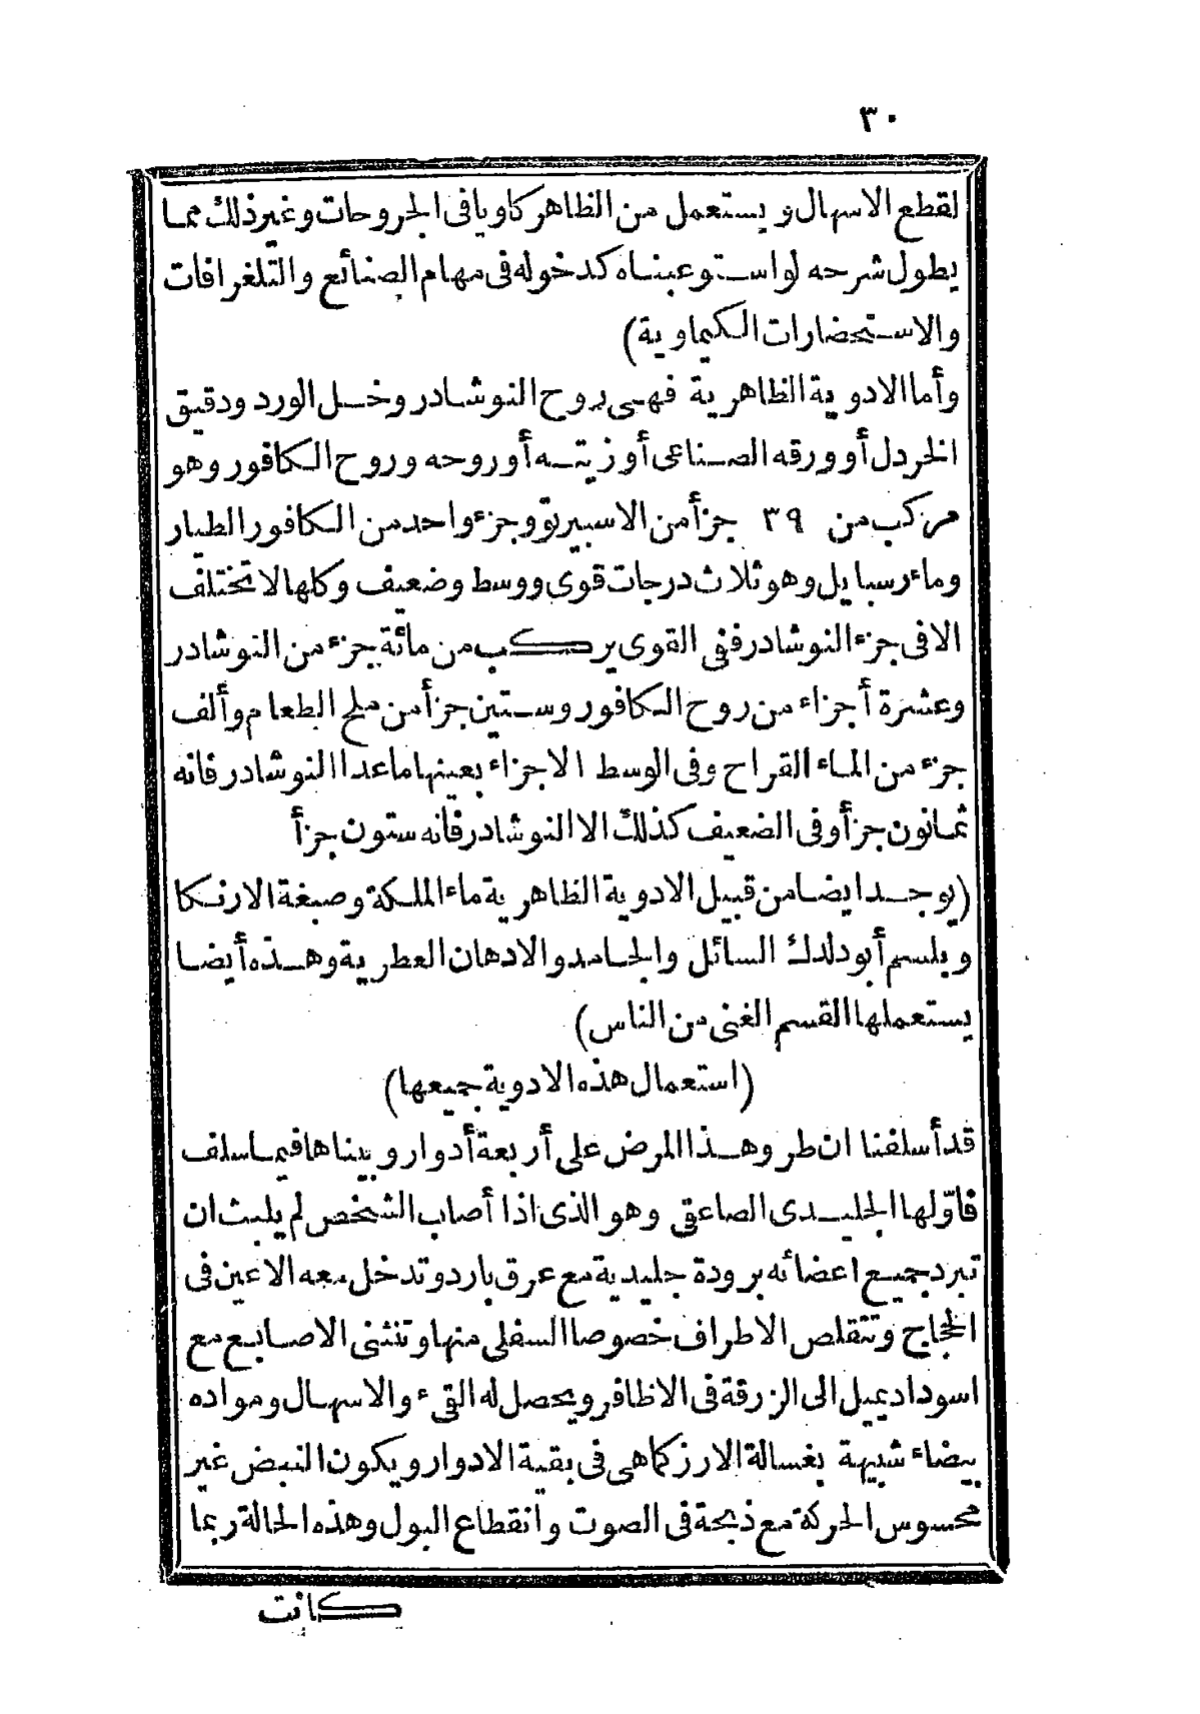 ٣٠
لقطع الاسهال ويستعمل من الظاهر كاويا فى الجروحات وغير ذلك مما
يطول شرحه لو استوعبناه كدخوله فى مهام الصنائع والتلغرافات
والاستحضارات الكيماوية)
وأما الادوية الظاهرية فهى روح النوشادر وخل الورد ودقيق
الخردل أو ورقه الصناعى أو زيته أو روحه وروح الكافور وهو
مركب من ٣٩ جزأ من الاسبيرتو وجزء واحد من الكافور الطيار
وماء رسبايل وهو ثلاث درجات قوى ووسط وضعيف وكلها لا تختلف
الا فى جزء النوشادر ففى القوى يركب من مائة جزء من النوشادر
وعشرة أجزاء من روح الكافور وستين جزأ من ملح الطعام وألف
جزء من الماء القراح وفى الوسط الاجزاء بعينها ما عدا النوشادر فانه
ثمانون جزأ وفى الضعيف كذلك الا النوشادر فانه ستون جزأ
(يوجد ايضا من قبيل الادوية الظاهرية ماء الملكة وصبغة الارنكا
وبلسم أبودلدك السائل والجامد والادهان العطرية وهذه أيضا
يستعملها القسم الغنى من الناس)
(استعمال هذه الادوية جميعها)
قد أسلفنا ان طروّ هذا المرض على أربعة أدوار وبيناها فيما سلف
فاوّلها الجليدى الصاعقى وهو الذى اذا أصاب الشخص لم يلبث ان
تبرد جميع اعضائه برودة جليدية مع عرق بارد وتدخل معه الاعين فى
الحجاج وتتقلص الاطراف خصوصا السفلى منها وتنثنى الاصابع مع
اسوداد يميل الى الزرقة فى الاظافر ويحصل له القىء والاسهال ومواده
بيضاء شبيهة بغسالة الارز كما هى فى بقية الادوار ويكون النبض غير
محسوس الحركة مع ذبحة فى الصوت وانقطاع البول وهذه الحالة ربما
كانت